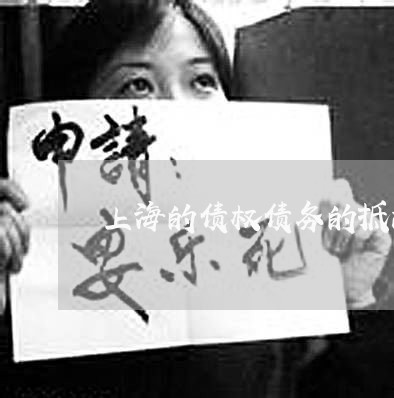 申請:
上海的债权债务的抵
安乐死